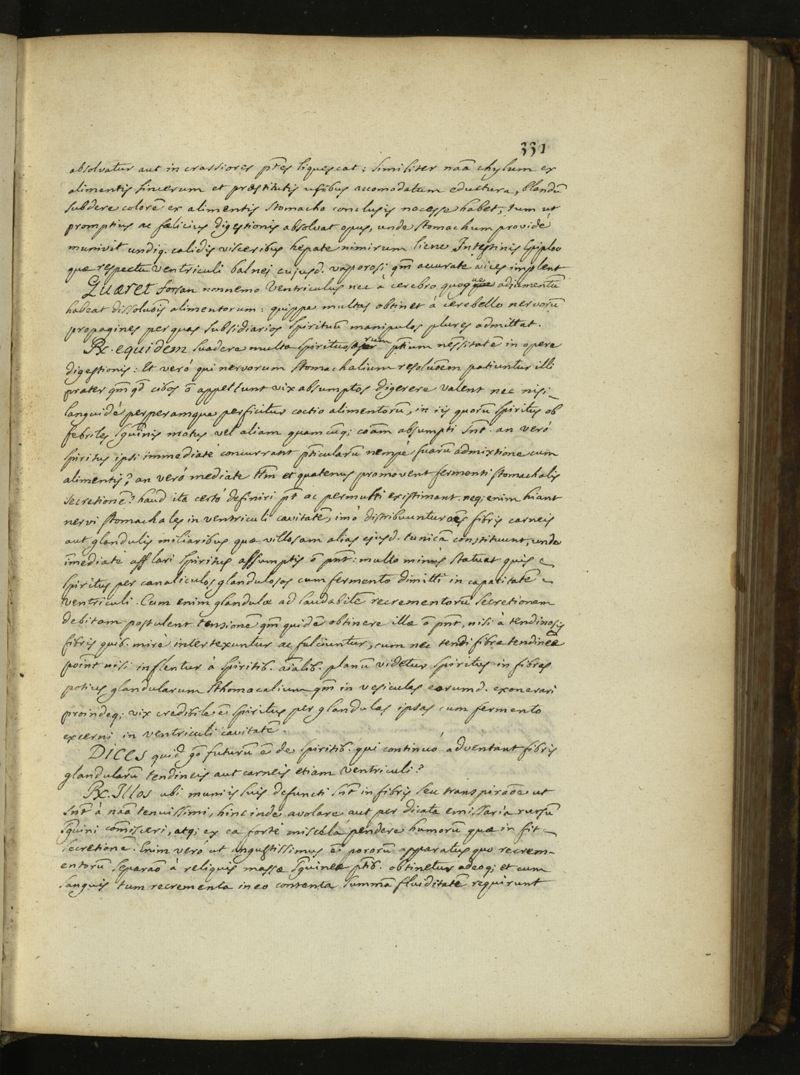 331
absolvatur aut in crassiores ptēs liquescat : similiter nāā chylum ex
alimentis sincerum et præstitutis usibus accomodatum eductura, blandū
subdere calorē ex alimentis stomacho conclusis necesse habet, tum ut
promptius ac fælicius digestionis absolvat opus, unde stomachum providè
munivit undiq. calidis visceribus hepate nimirum liene Intestinis Epiploo
quæ respectu ventriculi balnei cujusd. vaporosi qm̄ accuratè vices implent
Quæret forsan nonnemo Ventriculus nec à cerebro quoque adjumentū
habeat dissolvōis alimentorum : quippe multas obtinet à cerebello nervorū
propagines per quas subsidiarios spirituum manipulos plures admittat.
Rx. equidem suadere multa spirituosarum ptium nessitatē in opere
digestionis : Et verò qui nervorum stomachalium resolutōem patiuntur illi
præter qm̄ qd cibos ō appettunt vix absumptos digerere valent nec nisi
languidè perperamque perficitur coctio alimentorū, in iis quorū spiritus ob
febriles sgūinis motus vel aliam quamcūq; cāām absumpti snt. an verò
spiritus ipsi immediatè concurrant pticularū nempe suarū admixtione cum
alimentis, an verò mediatè ttm̄ et quatenus promovent fermenti stomachalis
secretionē? haud ita certò definiri pt ac permulti existimant. neq; enim hiant
nervi stomachales in ventriculi cavitatē, imò distribuuntur oēs fibris carneis
aut glandulis miliaribus quæ villosam alias ejusd. tunicā constituunt, unde
īmediatè afflari spiritus assumptis ō pnt : multo minùs statuat quis
spiritus per canaliculos glandulosos cum fermento dimitti in capacitatē
ventriculi. Cum enim glandulæ ad laudabilē recrementorū secretionem
debitam postulent tensionē qm̄ quidē obtinere illæ ō pnt, nisi à tendinosis
fibris quib. mirè intertexuntur ac fulciuntur, cum nec tendi fibræ tendineæ
point nisi inflentur à spiritib. aīalib. planū videtur spiritus in fibras
potius glandularum sthomacalium qm̄ in vesiculas earumd. exonerari
proindeq; vix credibile ē spiritus per glandulas ipsas cum fermento
excerni in ventriculi cavitatē.
Dices quid gō futurū ē de spiritib. qui continuò adventant fibris
glandularū tendineis aut carneis etiam ventriculi?
Rx. Illos ubi muniis suis defuncti snt in fibris seu transpirāōe ut
snt à nāā tenuissimi, hinc inde avolare aut per dicata emissaria rursū
sgūini cōmisceri, atq; ex ea fortè miscelâ pendere humorū quæ in fit
secretionē. Enim verò ut angustissimus ē pororū apparatus quo recrem-
entorū separāō à reliquis massæ sgūineæ ptib. obtinetur adeoq; et cum
sanguis tum recrementa in eo contenta summā fluiditatē requirunt